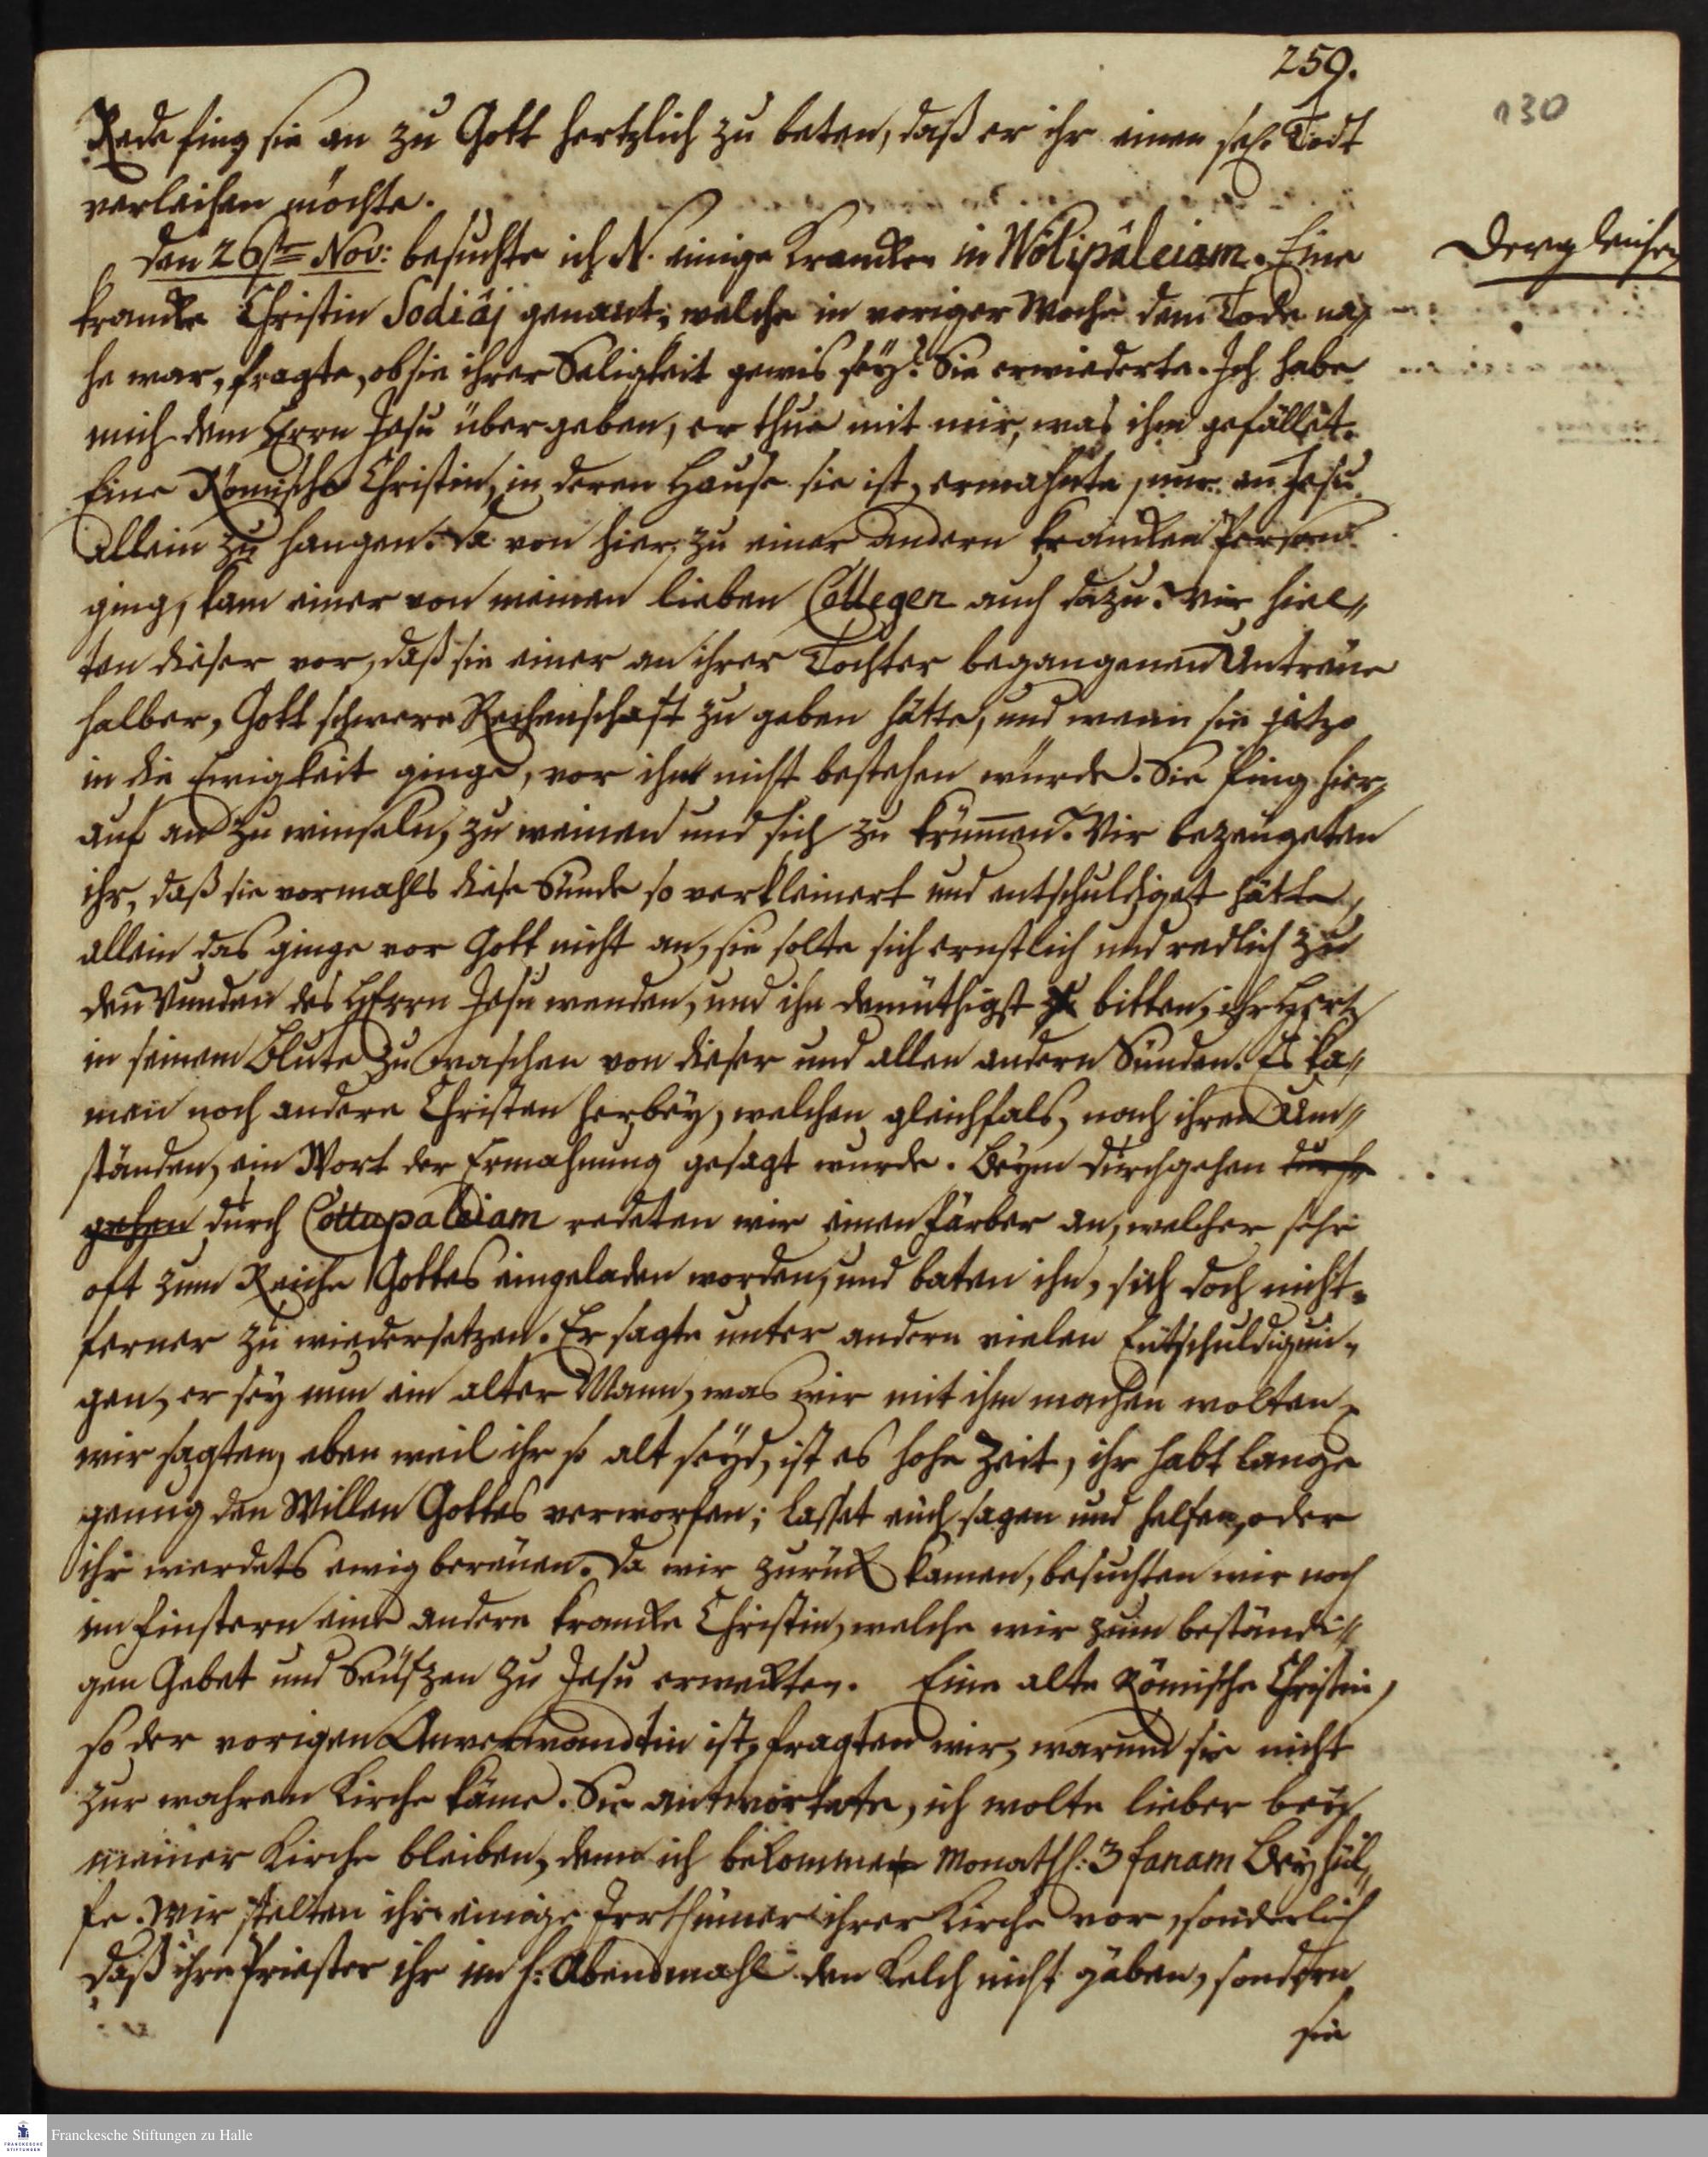 259.
130
Rede fing sie an zu Gott hertzlich zu beten, daß er ihr einen sel. Todt
verleihen möchte.
Den 26ste Nov: besuchte ich N. einige Krancke in Wölipáleiam. Eine
Dergleichen
krancke Christin Sodiáj genant, welche in voriger Woche dem Tode na=
he war, fragte, ob sie ihrer Seligkeit gewis sey? Sie erwiederte. Ich habe
mich dem HErrn Jesu übergeben, er thue mit mir, was ihm gefället.
Eine Römische Christin, in deren Hause sie ist, ermahnte, nur an Jesu
allein zu hangen. Da von hier zu einer andern krancken Person
ging, kam einer von meinen lieben Collegen auch dazu. Wir hiel=
ten dieser vor, daß sie einer an ihrer Tochter begangenen Untreüe
halber, Gott schwere Rechenschaft zu geben hätte, und wenn sie jetzo
in die Ewigkeit ginge, vor ihm nicht bestehen würde. Sie fing hier=
auf an zu winseln, zu weinen und sich zu krüm̅en. Wir bezeugeten
ihr, daß sie vormahls diese Sünde so verkleinert und entschuldiget hätte,
allein das ginge vor Gott nicht an, sie solte sich ernstlich und redlich zu
den Wunden des HErrn Jesu wenden, und ihn demüthigst zu bitten, ihr Hertz
in seinem Blute zu waschen von dieser und allen andern Sünden. Es ka=
men noch andere Christen herbey, welchen gleichfals, nach ihren Um=
ständen, ein Wort der Ermahnung gesagt wurde. Beym durchgehen durch
gehen durch Cottupaleiam redeten wir einen Färber an, welcher sehr
oft zum Reiche Gottes eingeladen worden, und baten ihn, sich doch nicht
ferner zu wiedersetzen. Er sagte unter andern vielen Entschuldigun=
gen, er sey nun ein alter Mann, was wir mit ihm machen wolten,
wir sagten, eben weil ihr so alt seyd, ist es hohe Zeit, ihr habt lange
genug den Willen Gottes verworfen; lasset euch sagen und helfen, oder
ihr werdets ewig bereuen. Da wir zurück kamen, besuchten wir noch
im finstern eine andere krancke Christin, welche wir zum beständi=
gen Gebet und Seüfzen zu Jesu erweckten. Eine alte Römische Christin,
so der vorigen Anverwandtin ist, fragten wir, warum sie nicht
zur wahren Kirche käme. Sie antwortete, ich wolte lieber bey
meiner Kirche bleiben, denn ich bekomme Monathl: 3 fanam Beyhül=
fe. Wir stelten ihr einige Irrthümer ihrer Kirche vor, sonderlich
daß ihre Priester ihr im h: Abendmahl den Kelch nicht gäben, sondern
sie
Franckesche Stiftungen zu Halle
FRANCKESCHE
STIFTUNGEN